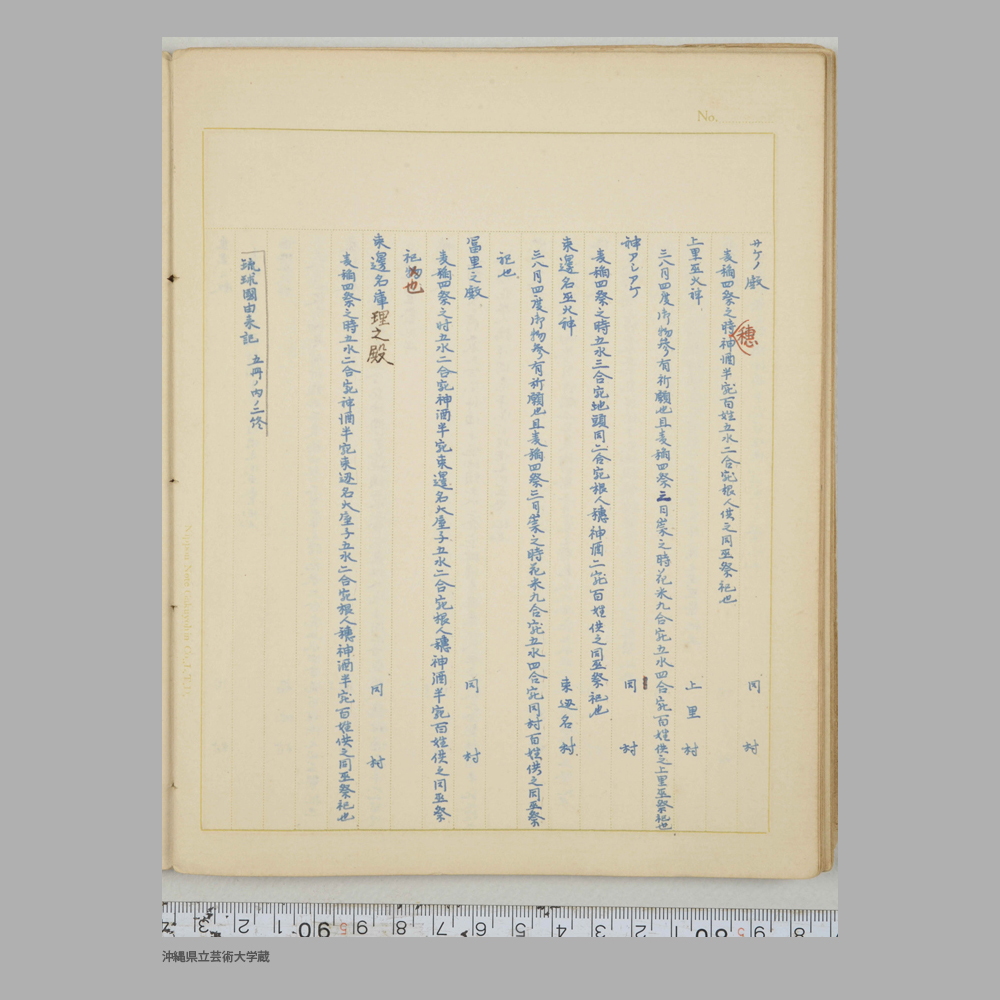 No.
サケノ殿 同村
麦稲四祭之時神酒半宛百姓五水二合宛根人供之同巫祭祀也
穂
上里巫火神 上里村
三八月四度御物参有祈願也且麦稲四祭三日崇之時花米九合宛五水四合宛百姓供之上里巫祭祀也
神アシアゲ 同村
麦稲四祭之時五水三合宛地頭同二合宛根人穂神酒二宛百姓供之同巫祭祀也
東邊名巫火神 東辺名村
三八月四度御物参有祈願也且麦稲四祭三日崇之時花米九合宛五水四合宛同村百姓供之同巫祭
祀也
冨里之殿 同村
麦稲四祭之時五水二合宛神酒半宛東邊名大屋子五水二合宛根人穂神酒半宛百姓供之同巫祭
祀也
東邊名庫理之殿 同村
麦稲四祭之時五水二合宛神酒半宛東辺名大屋子五水二合宛根人穂神酒半宛百姓供之同巫祭祀也
琉球國由来記 五冊ノ内ノ二終
沖縄県立芸術大学蔵